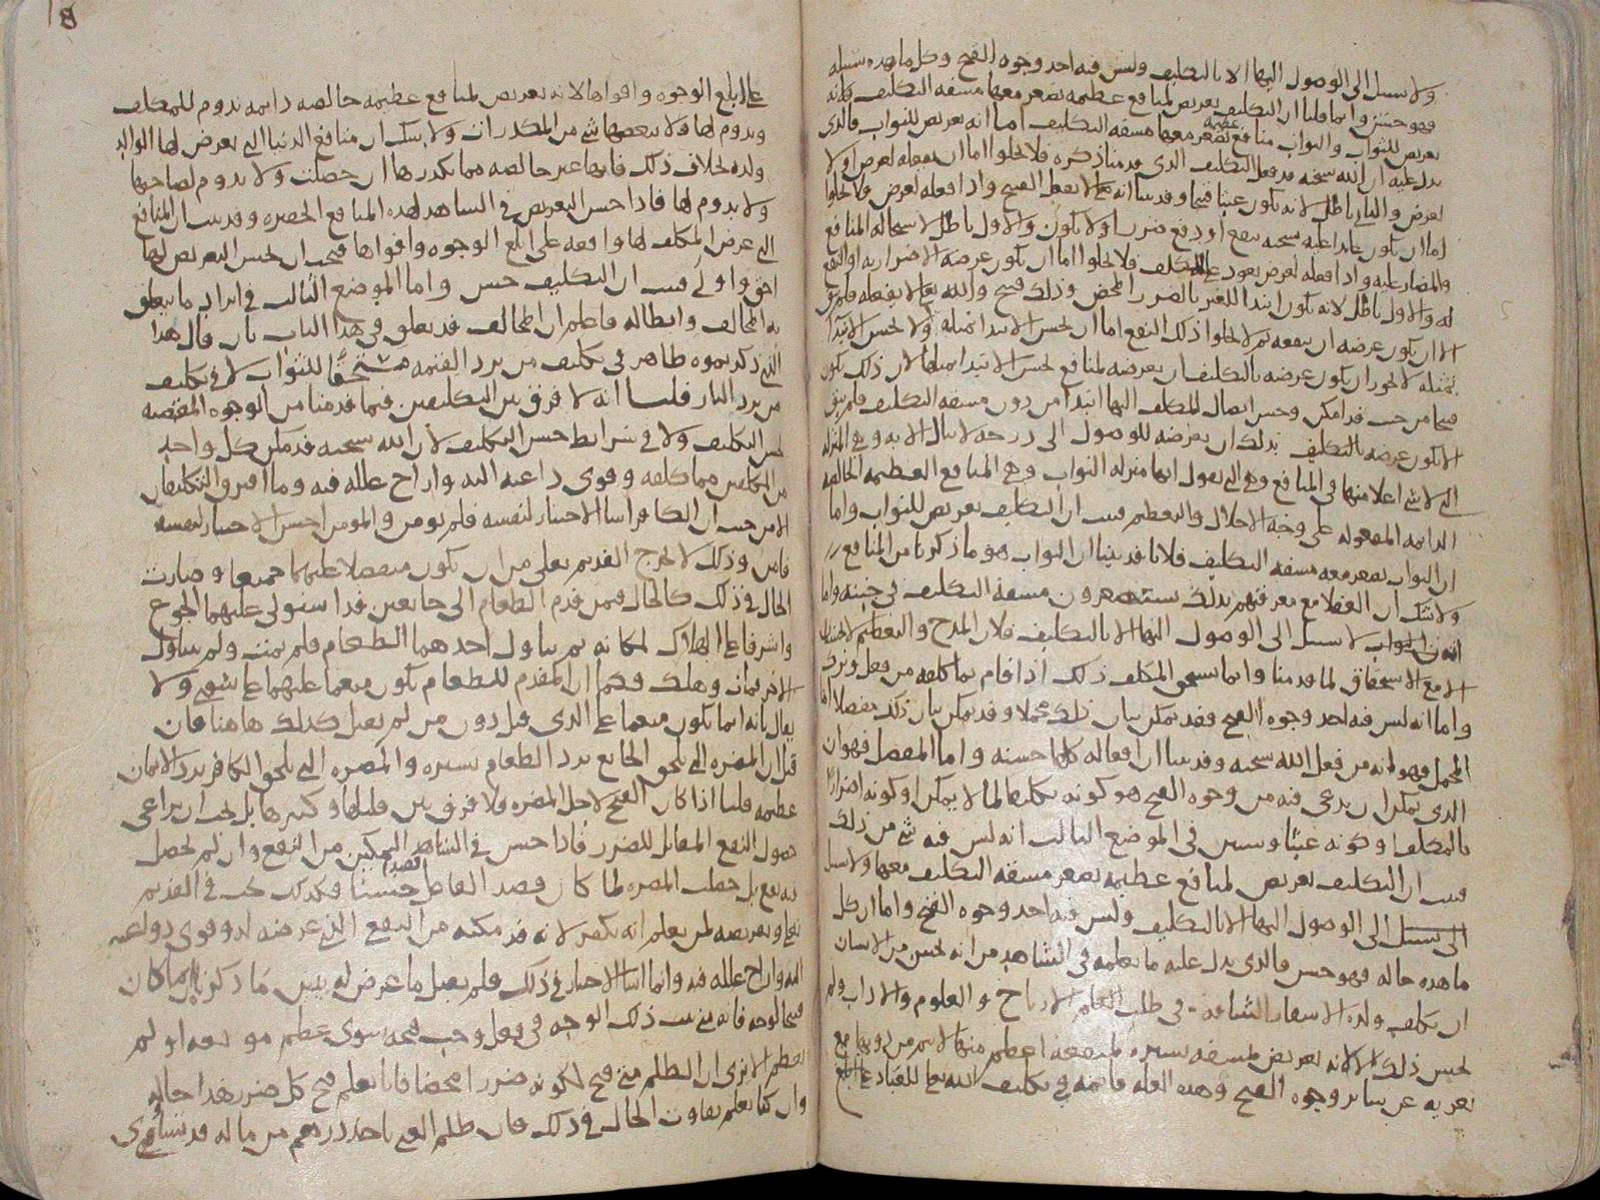 ولا سبيل الى الوصول اليها الا بالتكليف وليس فيه احد وجوه القبح وكل ما هذه سبيله
فهو حسن وانما قلنا ان التكليف تعريض لمنافع عظيمة يصغر معها مشقة التكليف فلانه
تعريض للثواب والثواب منافع عظيمة يصغر معها مشقة التكليف اما انه تعريض للثواب فالذي
يدل عليه ان الله سبحنه قد فعل التكليف الذي قدمنا ذكره فلا يخلوا اما ان يفعله لغرض او لا
لغرض والثاني باطل لانه يكون عبثا قبيحا وقد بينا انه تعالى لا يفعل القبيح واذا فعله لغرض فلا يخلوا
اما ان يكون عائدا عليه سبحنه بنفع او دفع ضرر او لا يكون والاول باطل لاستحالة المنافع
والمضار عليه واذا فعله لغرض يعود على المكلف فلا يخلوا اما ان يكون غرضه الاضرار به او النفع
له والاول باطل لانه يكون ابتدا للغير بالضرر المحض وذلك قبيح والله تعالى لا يفعله فلم يبق
الا ان يكون غرضه ان ينفعه ثم لا يخلوا ذلك النفع اما ان يحسن الابتدا بمثله او لا يحسن الابتدا
بمثله لا يجوز ان يكون غرضه بالتكليف ان يعرضه لمنافع يحسن الابتدا بمثلها لان ذلك يكون
قبيحا من حيث قد امكن وحسن ايصال المكلف اليها ابتدا من دون مشقة التكليف فلم يبق
الا ان يكون غرضه بالتكليف بذلك ان يعرضه للوصول الى درجة لا ينال الا به وهي المنزلة
التي لا شي اعلا منها في المنافع وهي التي نقول انها منزلة الثواب وهي المنافع العظيمة الخالصة
الدائمة المفعولة على وجه الاجلال والتعظيم فثبت ان التكليف تعريض للثواب واما
ان الثواب يصغر معه مشقة التكليف فلانا قد بينا ان الثواب هو ما ذكرنا من المنافع
ولا شك ان العقلا مع معرفتهم بذلك يستصغرون مشقة التكليف في جنبه واما
انه لا سبيل الى الوصول اليها الا بالتكليف فلان المدح والتعظيم لا يحسنان
الا مع الاستحقاق لما قدمنا وانما يستحق المكلف ذلك اذا قام بما كلفه من فعل وترك
واما انه ليس فيه احد وجوه القبح فقد يمكن بيان ذلك مجملا وقد يمكن بيان ذلك مفصلا اما
المجمل فهو انه من فعل الله سبحنه وقد بينا ان افعاله كلها حسنة واما المفصل فهو ان
الذي يمكن ان يدعى فيه من وجوه القبح هو كونه تكليفا لما لا يمكن او كونه اضرارا
بالمكلف او كونه عبثا وسنبين في الموضع الثالث انه ليس فيه شي من ذلك
فثبت ان التكليف تعريض لمنافع عظيمة يصغر مشقة التكليف معها ولا سبيل
الى الوصول اليها الا بالتكليف وليس فيه احد وجوه القبح واما ان كل
ما هذه حاله فهو حسن فالذي يدل عليه ما نعلمه في الشاهد من انه يحسن من الانسان
ان يكلف ولده الاسفار الشاقة في طلب العلم الارباح والعلوم والاداب ولم
يحسن ذلك الا لانه تعريض لمشقة يسيرة لمنفعة اعظم منها مع
تعريه عن سائر وجوه القبح وهذه العلة قائمة في تكليف الله تعالى للعباد على ابلغ
على ابلغ الوجوه واقواها لانه تعريض لمنافع عظيمة خالصة دائمة تدوم للمكلف
ويدوم لها ولا يبغضها شي من المكدرات ولا شك ان منافع الدنيا التي يعرض لها الوالد
ولده بخلاف ذلك فانها غير خالصة مما يكدرها ان حصلت ولا يدوم لصاحبها
ولا يدوم لها فاذا حسن التعريض في الشاهد لهذه المنافع الحقيرة وقد بينا ان المنافع
التي عرض المكلف لها واقعة على ابلغ الوجوه واقواها فيجب ان يحسن التعريض لها
احق واولى فثبت ان التكليف حسن واما الموضع الثالث في ايراد ما يتعلق
به المخالف وابطاله فاعلم ان المخالف قد يتعلق في هذا الباب بان قال هذا
الذي ذكرتموه ظاهر في تكليف من يرد القيمة مستحقا للثواب لا في تكليف
من يرد النار قلنا انه لا فرق بين التكليفين فيما قدمنا من الوجوه المقتضية
لحسن التكليف ولا في شرايط حسن التكليف لان الله سبحنه قد مكن كل واحد
من المكلفين مما كلفه وقوى داعيه اليه وازاح علله فيه وما افترق التكليفان
الا من حيث ان الكافر اسا الاختيار لنفسه فلم يومن والمومن احسن الاختيار لنفسه
فامن وذلك لا يخرج القديم تعلى من ان يكون متفضلا عليهما جميعا وصارت
الحال في ذلك كالحال فيمن قدم الطعام الى جائعين قد استولى عليهما الجوع
واشرفا على الهلاك لمكانه ثم تناول احدهما الطعام فلم يمت ولم يتناول
الاخر فمات وهلك فكما ان المقدم للطعام يكون منعما عليهما على سوى ولا
يقال بانه انما يكون منعما على الذي قبل دون من لم يقبل كذلك هاهنا فان
قيل ان المضرة التي تلحق الجائع برد الطعام يسيرة والمضرة التي تلحق الكافر برد الايمان
عظيمة قلنا اذا كان القبح لاجل المضرة فلا فرق بين قليلها وكثيرها بل يجب ان يراعى
حصول النفع المقابل للضرر فاذا حسن في الشاهد التمكين من النفع وان لم يحصل
فيه نفع بل حصلت المضرة لما كان قصد الفاعل حسنا فكذلك يجب في القديم
تعالى وتعريضه لمن يعلم انه يكفر لانه قد مكنه من النفع الذي عرضه له وقوى دواعيه
اليه وازاح علله فيه وانما اسا الاختيار في ذلك فلم يقبل ما عرض له يبين ما ذكرنا ان ما كان
قبيحا لوجه فانه متى ثبت ذلك الوجه في فعل وجب قبحه سوى عظم موقعه او لم
يعظم الا ترى ان الظلم متى قبح لكونه ضررا محضا فانا نعلم قبح كل ضرر هذا حاله
وان كنا نعلم تفاوت الحال في ذلك فان ظلم الغير باخذ درهم من ماله قد يساوى